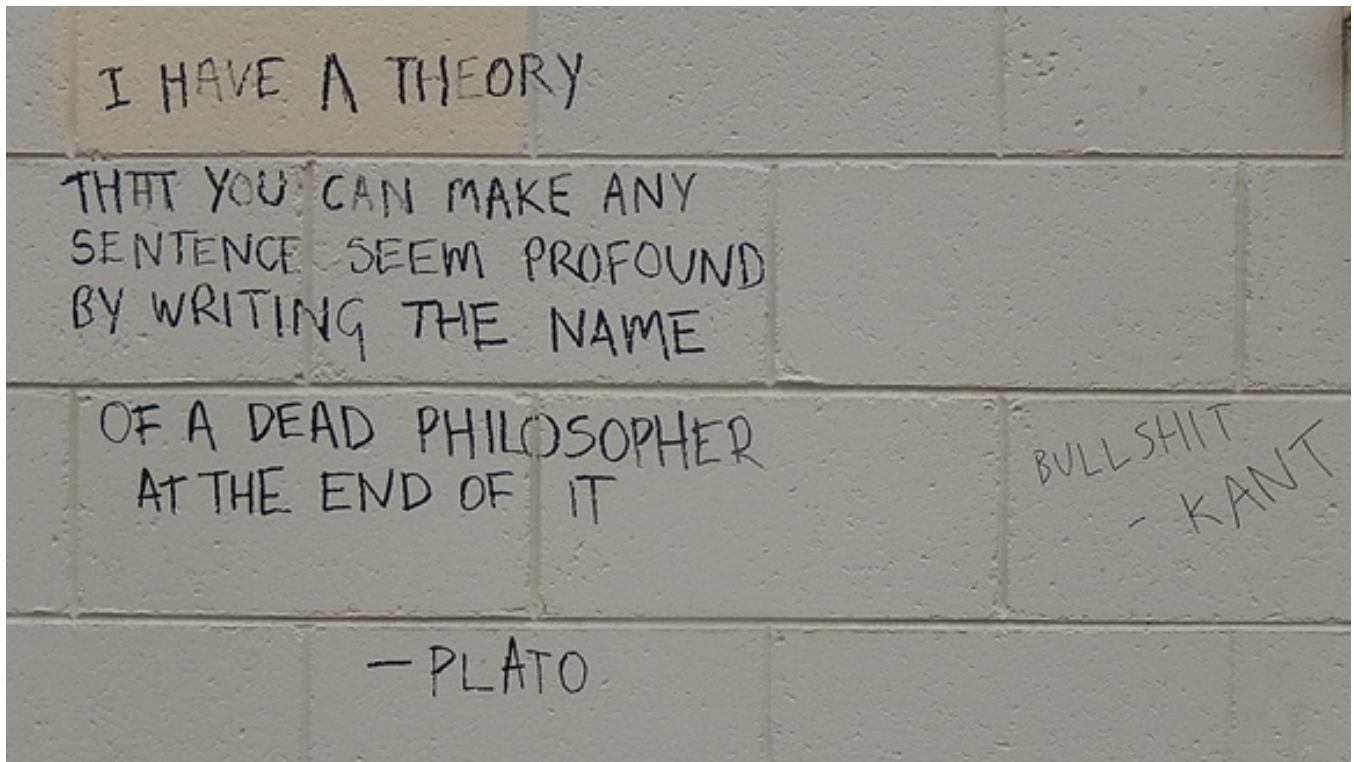 I HAVE A THEORY
THAT YOU CAN MAKE ANY
SENTENCE SEEM PROFOUND
BY WRITING THE NAME
OF A DEAD PHILOSOPHER
AT THE END OF IT
—PLATO
BULLSHIT
- KANT